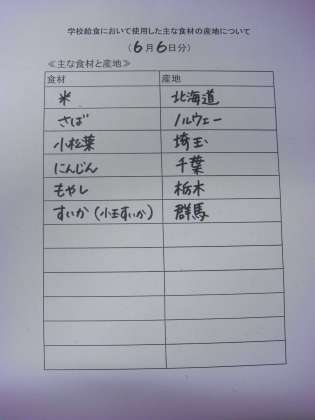 学校給食において使用した主な食材の産地について
(6月6日分)
≪主な食材と産地≫
食材 産地
米 北海道
さば ノルウェー
小松葉 埼玉
にんじん 千葉
もやし 栃木
すいか(小玉すいか) 群馬